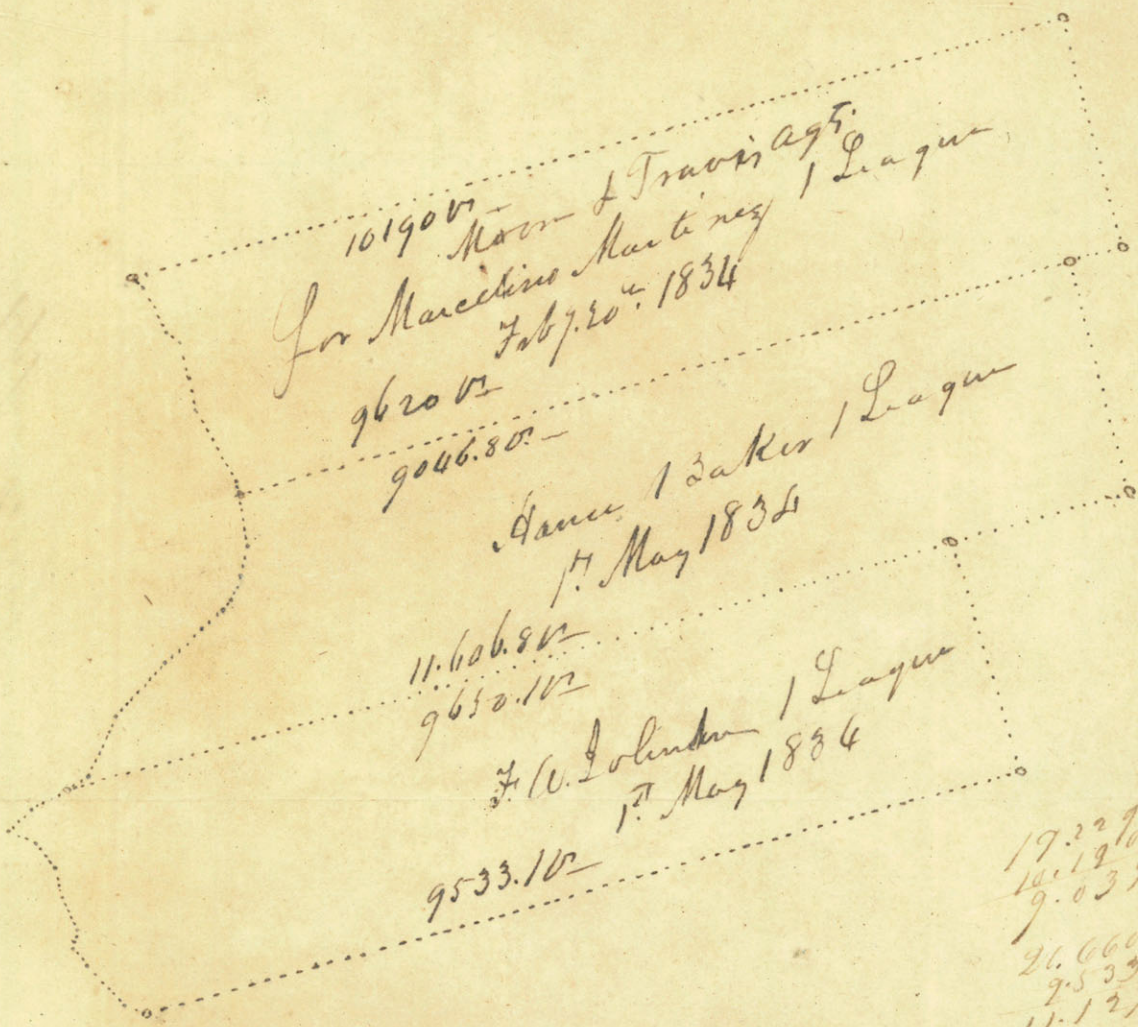 10190 vs
Moore & Travis Agt.
for Marcelino Martinez 1 League
Feby. 20th. 1834
9620 vs
9046.8 vs
Hance Baker 1 League
1st. May 1834
11.606.8 vs
9650.1 vs
F. W. Johnson 1 League
1st. May 1834
9533.1 vs
19.229
10.190
9.03
21.660
9.533
11.12